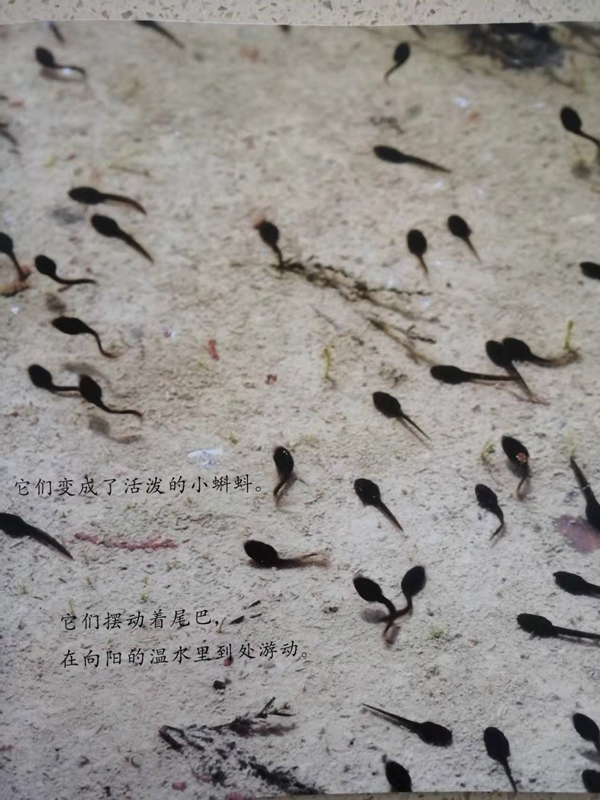 它们变成了活泼的小蝌蚪。
它们摆动着尾巴，
在向阳的温水里到处游动。